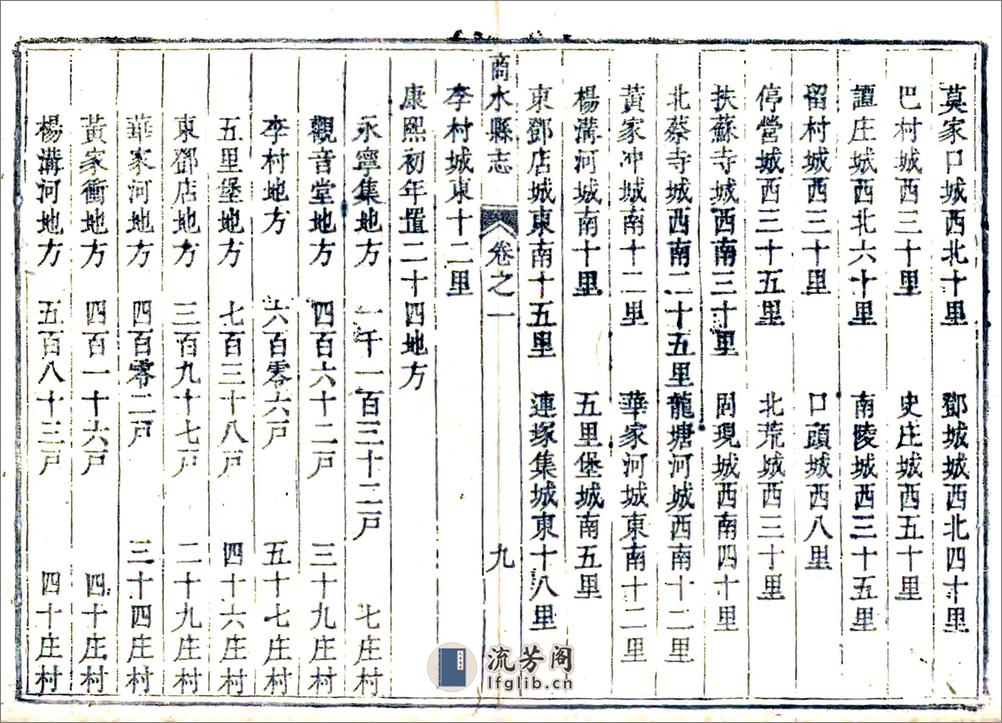 莫家口城西北十里　鄧城城西北四十里
巴村城西三十里　史庄城西五十里
譚庄城西北六十里　南陵城西三十五里
留村城西三十里　口頭城西八里
停營城西三十五里　北荒城西三十里
扶蘇寺城西南三十里　固現城西南四十里
北蔡寺城西南二十五里　龍塘河城西南十二里
黃家冲城南十二里　華家河城東南十二里
楊溝河城南十里　五里堡城南五里
東鄧店城東南十五里　連塚集城東十八里
商水縣志　卷之一　九
李村城東十二里
康熙初年置二十四地方
永寧集地方　一千一百三十二戸　七庄村
觀音堂地方　四百六十二戸　三十九庄村
李村地方　六百零六戸　五十七庄村
五里堡地方　七百三十八戸　四十六庄村
東鄧店地方　三百九十七戸　二十九庄村
華家河地方　四百零二戸　三十四庄村
黃家衝地方　四百一十六戸　四十庄村
楊溝河地方　五百八十三戸　四十庄村
流芳阁
lfglib.cn